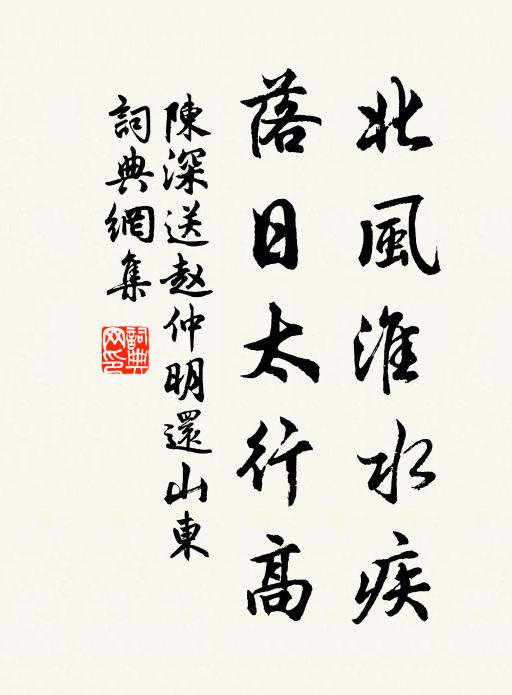 北風淮水疾
落日太行高
陳深送赵仲明還山東
詞典網集
詞典
网印